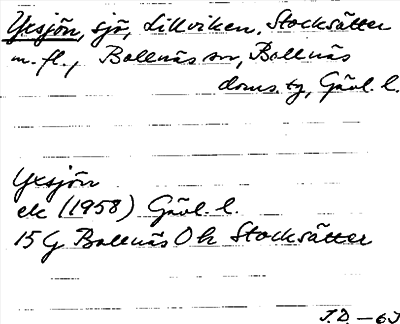 Yxsjön, sjö, Lillviken, Stocksätter
m. fl., Bollnäs sn, Bollnäs
doms. tg, Gävl. l.
Yxsjön
ek (1958) Gävl. l.
15G Bollnäs O h Stocksätter
J.D. – 63